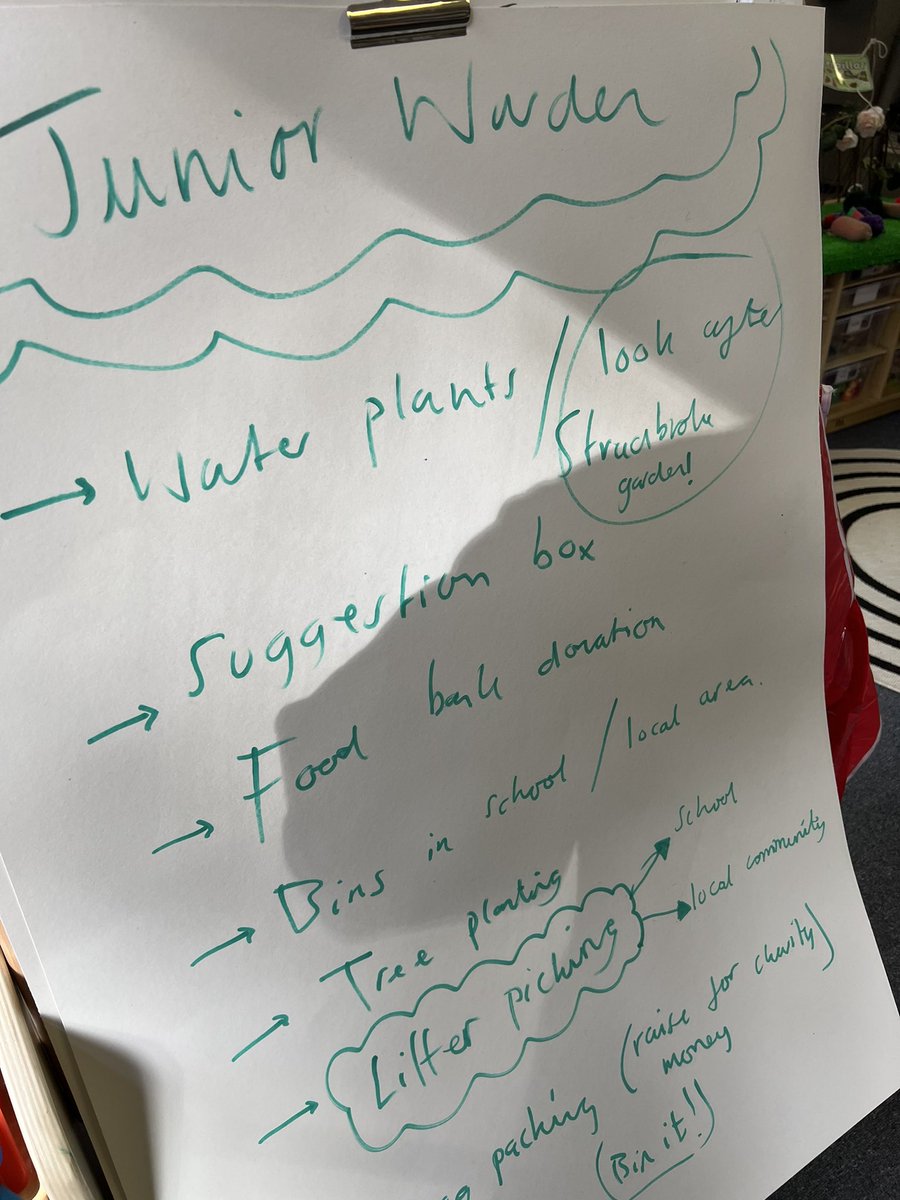 Junior Warden
→ Water plants / look after
Stradbroke
garden!
→ Suggestion box
→ Food bank donation
→ Bins in school / local area.
→ Tree planting
→ Litter picking → school
→ local community
packing (raise for charity)
money
(Bin it!)